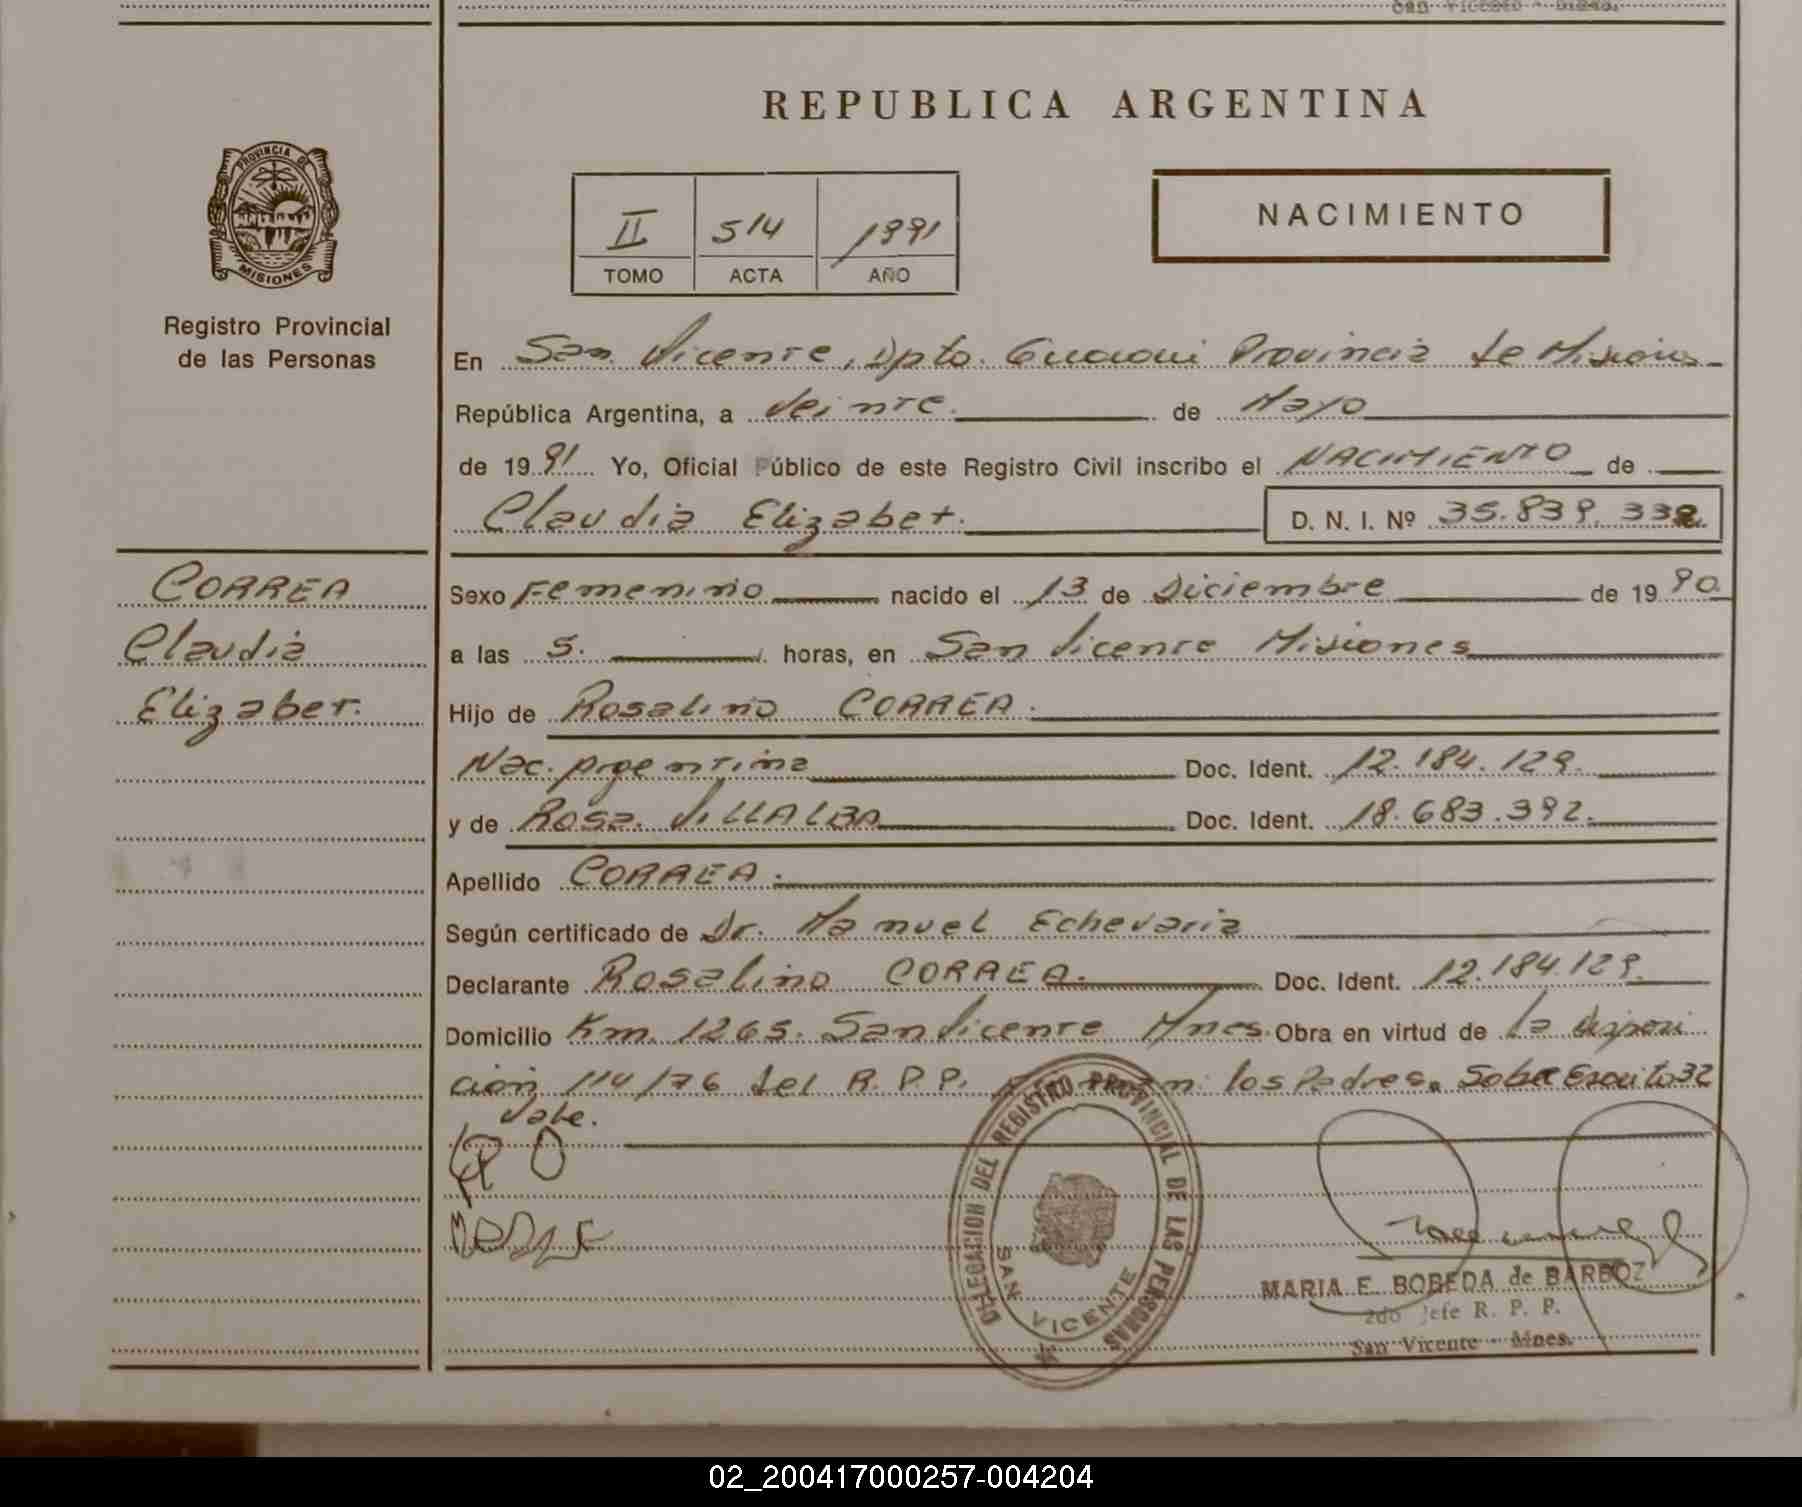 San Vicente - Mnes.
REPUBLICA ARGENTINA
PROVINCIA DE
MISIONES
Registro Provincial
de las Personas
II 514 1991
TOMO ACTA AÑO
NACIMIENTO
En San Vicente, Dpto. Guaraní Provincia de Misiones
República Argentina, a Veinte. de Mayo
de 1991 Yo, Oficial Público de este Registro Civil inscribo el NACIMIENTO de
Claudia Elizabet. D. N. I. Nº 35.839.332
CORREA
Claudia
Elizabet.
Sexo Femenino nacido el 13 de Diciembre de 1990.
a las 5. horas, en San Vicente Misiones
Hijo de Rosalino CORREA.
Nac. Argentina Doc. Ident. 12.184.129.
y de Rosa. VILLALBA Doc. Ident. 18.683.392.
Apellido CORREA.
Según certificado de Dr. Manuel Echevaria
Declarante Rosalino CORREA. Doc. Ident. 12.184.129.
Domicilio Km. 1265. San Vicente Mnes. Obra en virtud de La disposi
ción 114/76 del R.P.P. los Padres. Sobre Escrito 32
Vale.
DELEGACION DEL REGISTRO PROVINCIAL DE LAS PERSONAS
SAN VICENTE
MARIA E. BOBEDA de BARBOZ
2do Jefe R. P. P.
San Vicente - Mnes.
02_200417000257-004204